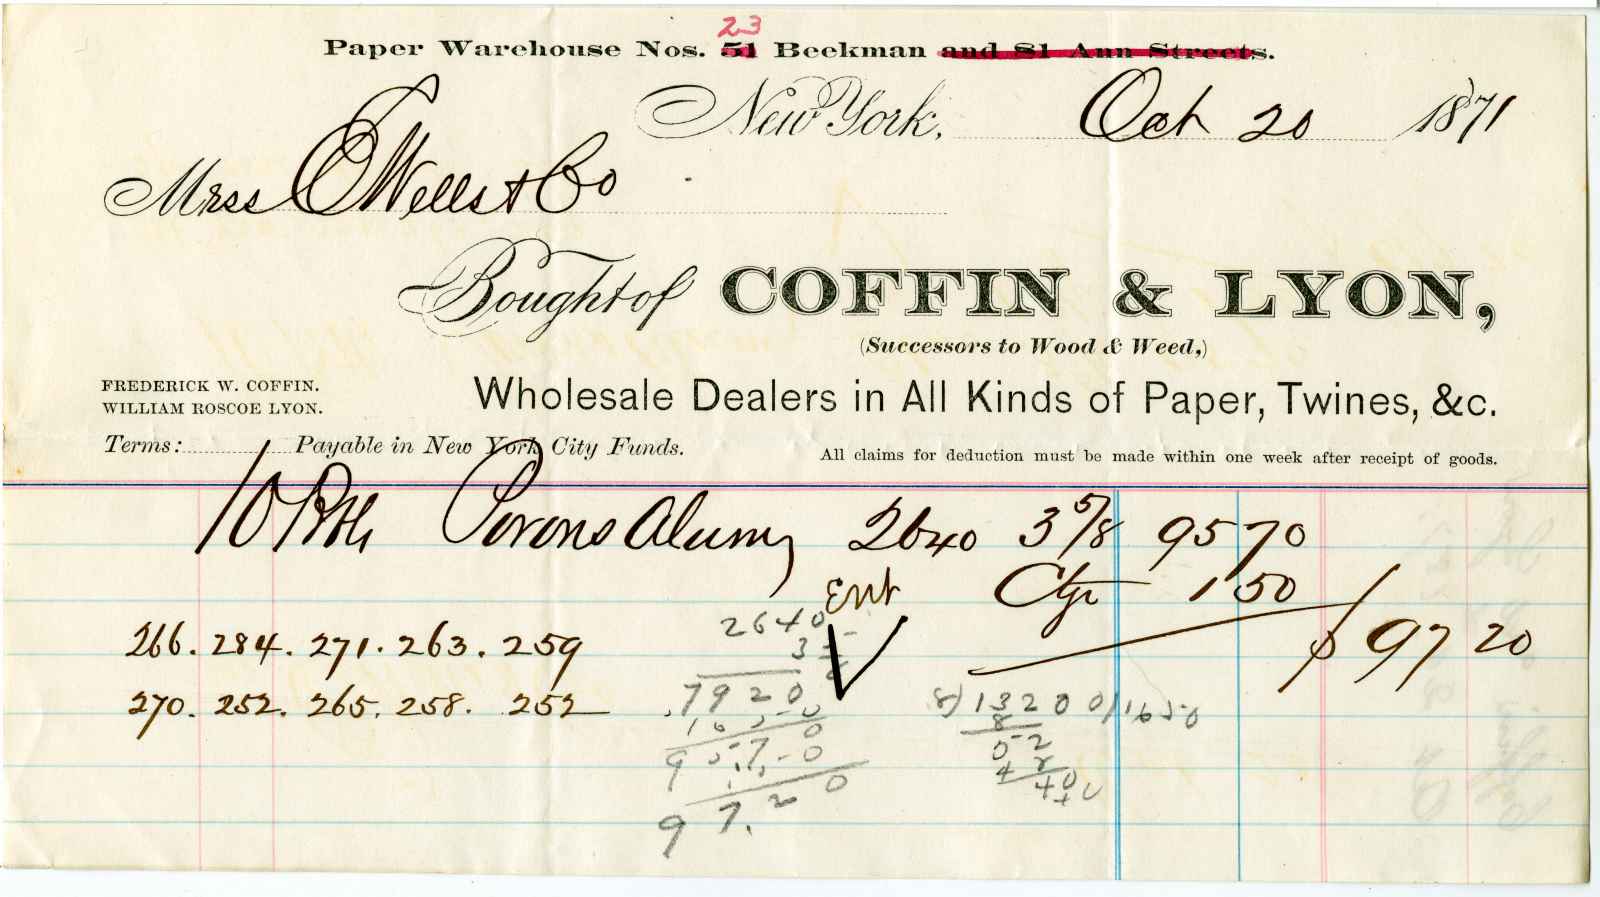 23
Paper Warehouse Nos. 51 Beekman and 81 Ann Streets.
New York, Oct 20 1871
Mrss E Wells & Co
Bought of COFFIN & LYON,
(Successors to Wood & Weed,)
FREDERICK W. COFFIN.
WILLIAM ROSCOE LYON.
Wholesale Dealers in All Kinds of Paper, Twines, &c.
Terms: Payable in New York City Funds.
All claims for deduction must be made within one week after receipt of goods.
10 Porous Alum 2640 3 5/8 95 70
Ent Ctge 1 50
$ 97 20
266. 284. 271. 263. 259
270. 252. 265. 258. 252
2640
3 5/8
7920
1650
95.70
1.50
97.20
8) 13200 / 1650
8
52
48
40
40